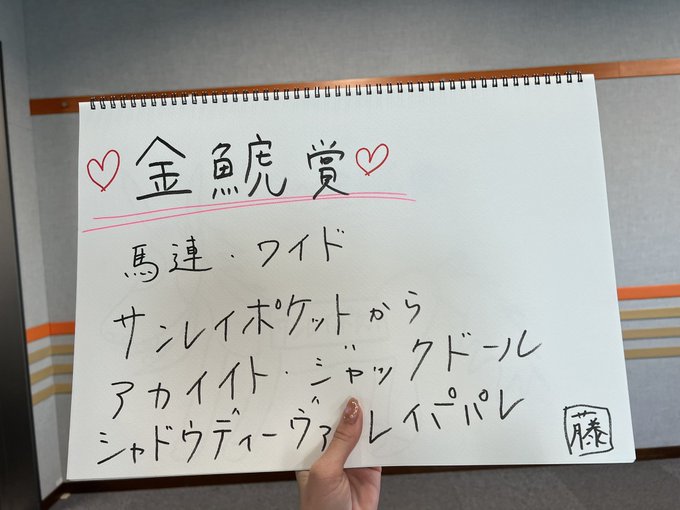 ♡金鯱賞♡
馬連・ワイド
サンレイポケットから
アカイイト・ジャックドール
シャドウディーヴァ レイパパレ
藤